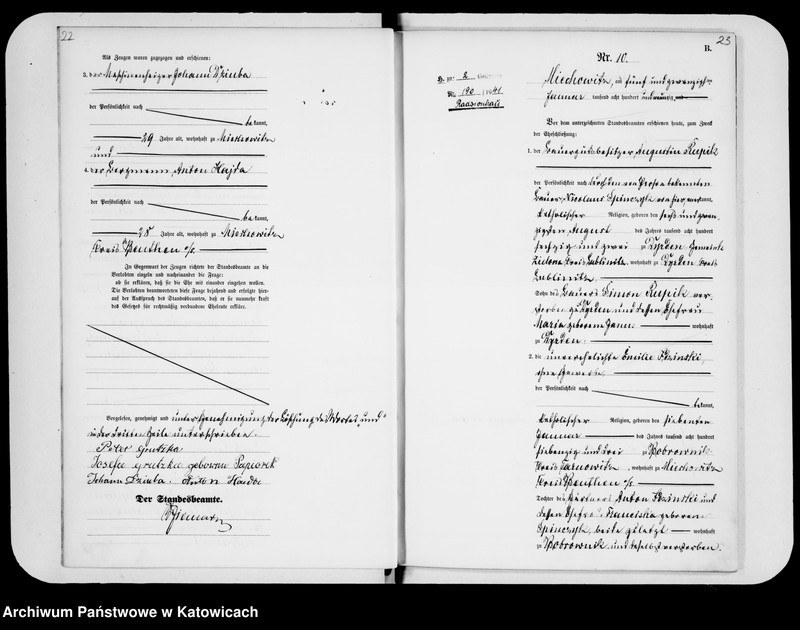 22
Als Zeugen waren zugezogen und erschienen:
3. der Maschinenheizer Johann Dziuba
der Persönlichkeit nach
be kannt,
29 Jahre alt, wohnhaft zu Miechowitz
und
4. der Bergmann Anton Hajda
der Persönlichkeit nach
be kannt,
28 Jahre alt, wohnhaft zu Miechowitz
Kreis Beuthen o/s.
In Gegenwart der Zeugen richtete der Standesbeamte an die
Verlobten einzeln und nacheinander die Frage:
ob sie erklären, daß sie die Ehe mit einander eingehen wollen.
Die Verlobten beantworteten diese Frage bejahend und erfolgte hier-
auf der Ausspruch des Standesbeamten, daß er sie nunmehr kraft
des Gesetzes für rechtmäßig verbundene Eheleute erkläre.
Vorgelesen, genehmigt und unter Genehmigung der Löschung des Wortes „und“
in der dritten Zeile unterschrieben.
Peter Grutzka
Josefa Grutzka geborene
Johann Dziuba. Anton
Der Standesbeamte.
23
B.
Nr. 10.
H. zu: 2
Nr. 190 / 1941
Miechowitz, am fünf und zwanzigsten
Januar tausend acht hundert
Vor dem unterzeichneten Standesbeamten erschienen heute, zum Zweck
der Eheschließung:
1. der Bauergutsbesitzer Augustin Kupik
der Persönlichkeit nach durch den von Person bekannten
Bauer Nicolaus Spinczyk von hier anerkannt,
katholischer Religion, geboren den sechs und zwan-
zigsten August des Jahres tausend acht hundert
sechzig und zwei zu Dyrden Gemeinde
Zielona Kreis Lublinitz, wohnhaft zu Dyrden Kreis
Lublinitz.
Sohn des Bauers Simon Kupik ver-
storben zu Dyrden und dessen Ehefrau
Maria geborene wohnhaft
zu Dyrden.
2. die unverehelichte Emilie
ohne Gewerbe.
der Persönlichkeit nach
be kannt,
katholischer Religion, geboren den siebenten
Januar des Jahres tausend acht hundert
siebenzig und drei zu Bobrownik
Kreis Tarnowitz, wohnhaft zu Miechowitz
Kreis Beuthen o/s.
Tochter des Gärtners Anton und
dessen Ehefrau Franciska geborene
Spinczyk, beide zuletzt wohnhaft
zu Bobrownik und daselbst verstorben.
Archiwum Państwowe w Katowicach